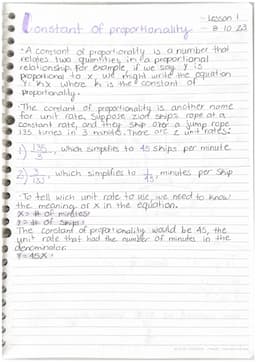 Lesson 1
Constant of proportionality
8.10.23
· A constant of proportionality is a number that
relates two quantities in a proportional
relationship. for example, if we say y is
proportional to x, we might write the equation
Y= kx where k is the constant of
proportionality.
· The constant of proportionality is another name
for unit rate. Suppose zion skips rope at a
constant rate, and they skip over a jump rope
135 times in 3 minute. There are 2 unit rates:
1) 135/3, which simplifies to 45 skips per minute
2) 3/135, which simplifies to 1/45, minutes per skip
· To tell wich unit rate to use, we need to know
the meaning of x in the equation.
X= # of minutes!
Y= # of skips!
The constant of proportionality would be 45, the
unit rate that had the number of minutes in the
denominator.
Y=45X!